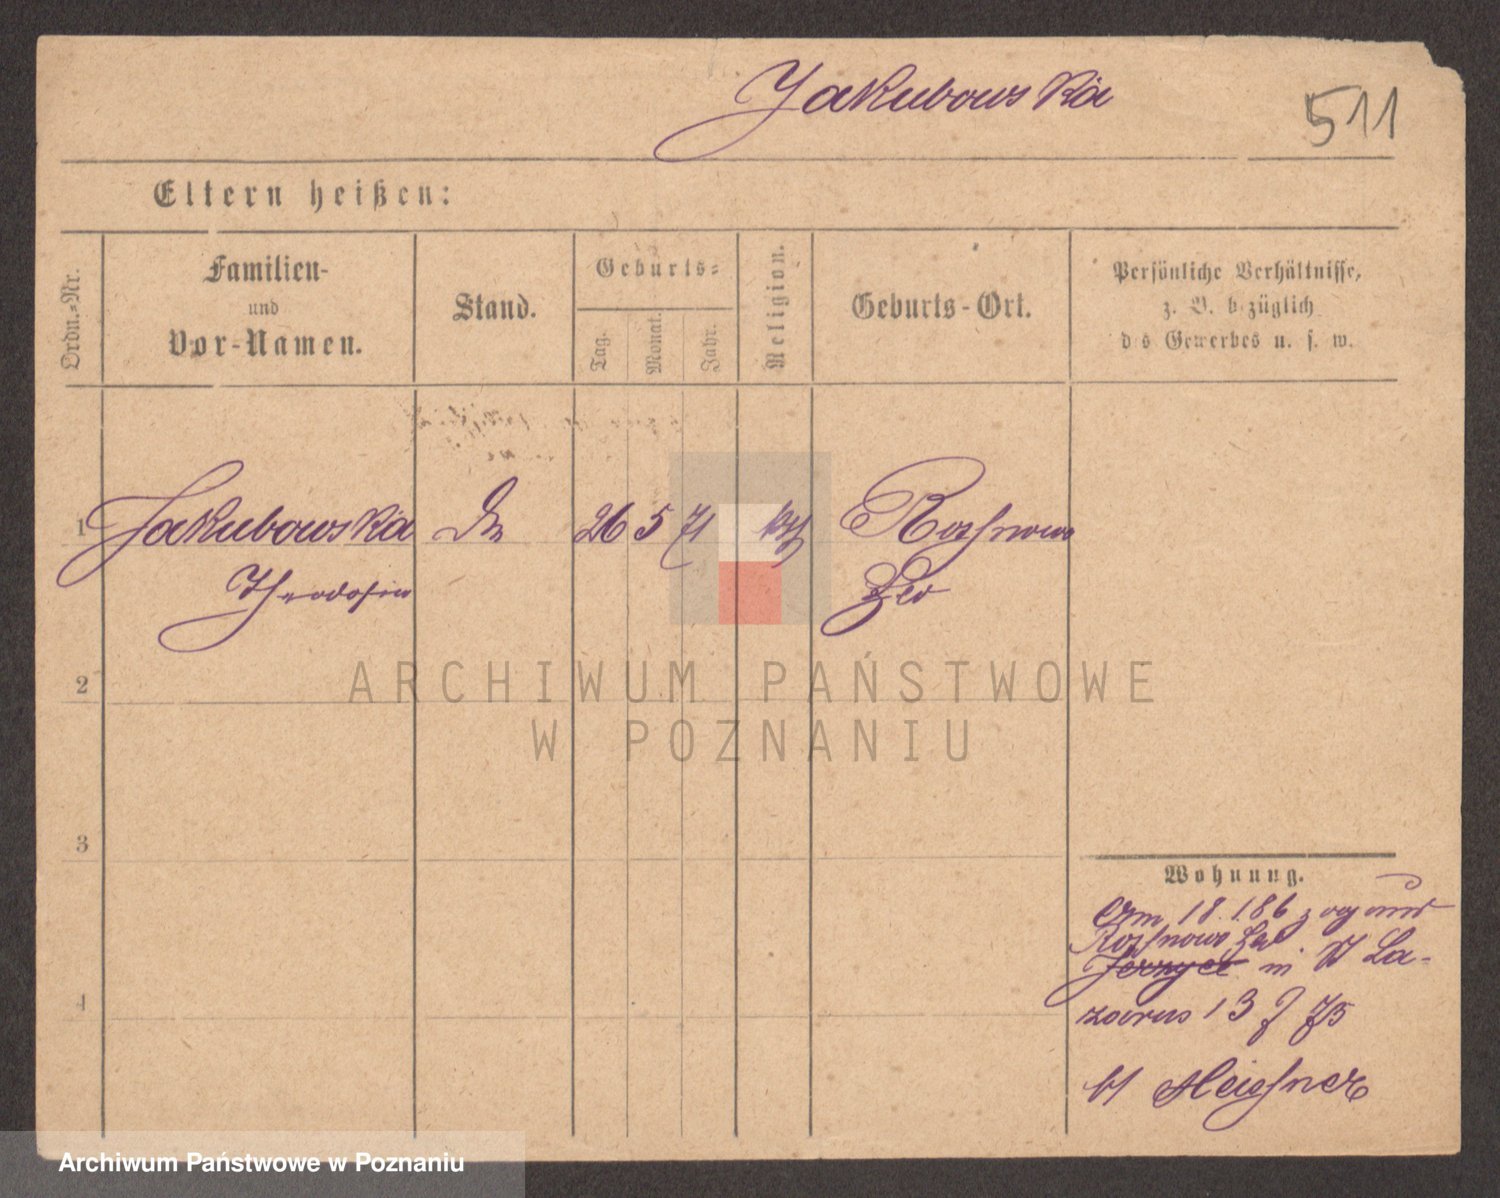 Jakubowska
511
Eltern heißen:
Ordn.-Nr.
Familien-
und
Vor-Namen.
Stand.
Geburts-
Tag.
Monat.
Jahr.
Religion.
Geburts-Ort.
Persönliche Verhältnisse,
z. B. bezüglich
des Gewerbes u. s. w.
1
Jakubowska
26 5 71
kth
Roshnowo
Theodosia
2
3
Wohnung.
18.186
Roshnowo
Jerzyce in St La-
zarus 13
bf Meissner
4
ARCHIWUM PAŃSTWOWE
W POZNANIU
Archiwum Państwowe w Poznaniu